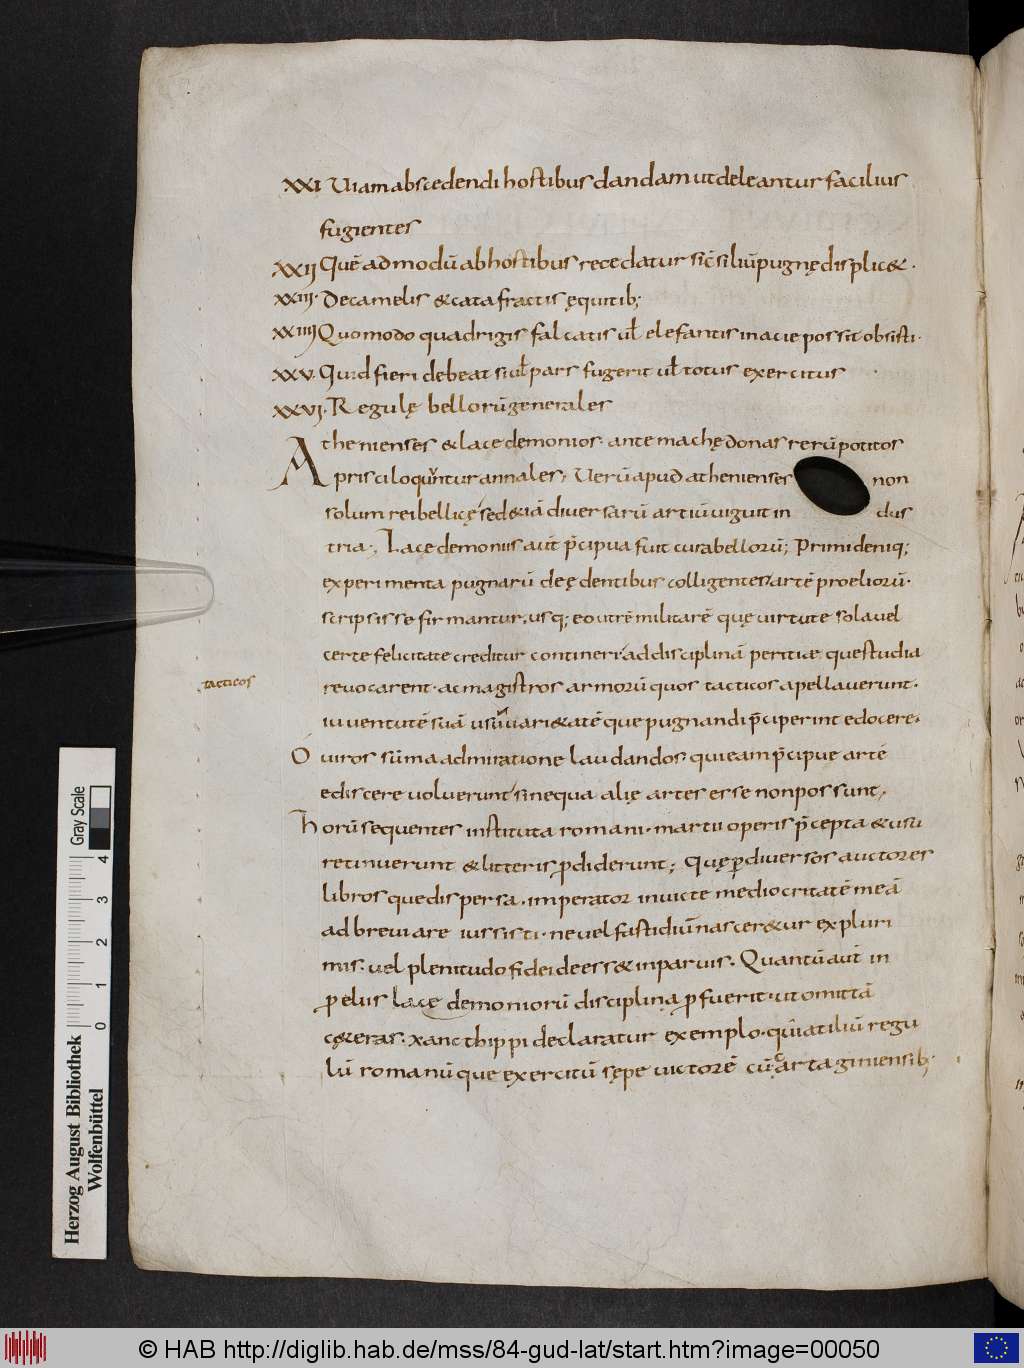 XXI Uiam abscedendi hostibus dandam ut deleantur facilius
fugientes
XXII Quē admodū ab hostibus recedatur si c̄siliū pugnę displic&.
XXIII. De camelis & catafractis ęquitib;
XXIIII Quomodo quadrigis falcatis ul̄ elefantis in acie possit obsisti.
XXV. Quid fieri debeat si ul̄ pars fugerit ul̄ totus exercitus
XXVI. Regulę bellorū generales
Athenienses & lacedemonios. ante machędonas rerū potitos
prisci loquuntur annales; Uerū apud athenienses non
solum rei bellicę sed &iā diuersarū artiū uiguit in dus
tria; Lacędemoniis aut̄ p̄cipua fuit cura bellorū; Primi deniq;
experimenta pugnarū de ędentibus colligentes artē proeliorū.
scripsisse firmantur. usq; eo ut rē militarē quę uirtute sola uel
certe felicitate creditur contineri ad disciplinā peritiæ que studia
tacticos
reuocarent. ac magistros armorū quos tacticos apellauerunt.
iuuentutē suā usū uari&atē que pugnandi p̄ciperint edocere.
O uiros sūma admiratione laudandos. qui eam p̄cipue artē
ediscere uoluerunt sine qua alię artes esse non possunt.
Horū sequentes instituta romani. martii operis p̄cepta & usu
retinuerunt & litteris p̄diderunt; Quę p̄ diuersos auctores
libros que dispersa. imperator inuicte mediocritatē meā
adbreuiare iussisti. ne uel fastidiū nascer&ur ex pluri
mis. uel plenitudo fidei deess& in paruis. Quantū aut̄ in
p̄eliis lacędemoniorū disciplina p̄fuerit. ut omittā
c&eras. xanthippi declaratur exemplo. qui atiliū regu
lū romanū que exercitū sępe uictorē cū cartaginiensib;
Herzog August Bibliothek
Wolfenbüttel
0 1 2 3 4
Gray Scale
© HAB http://diglib.hab.de/mss/84-gud-lat/start.htm?image=00050